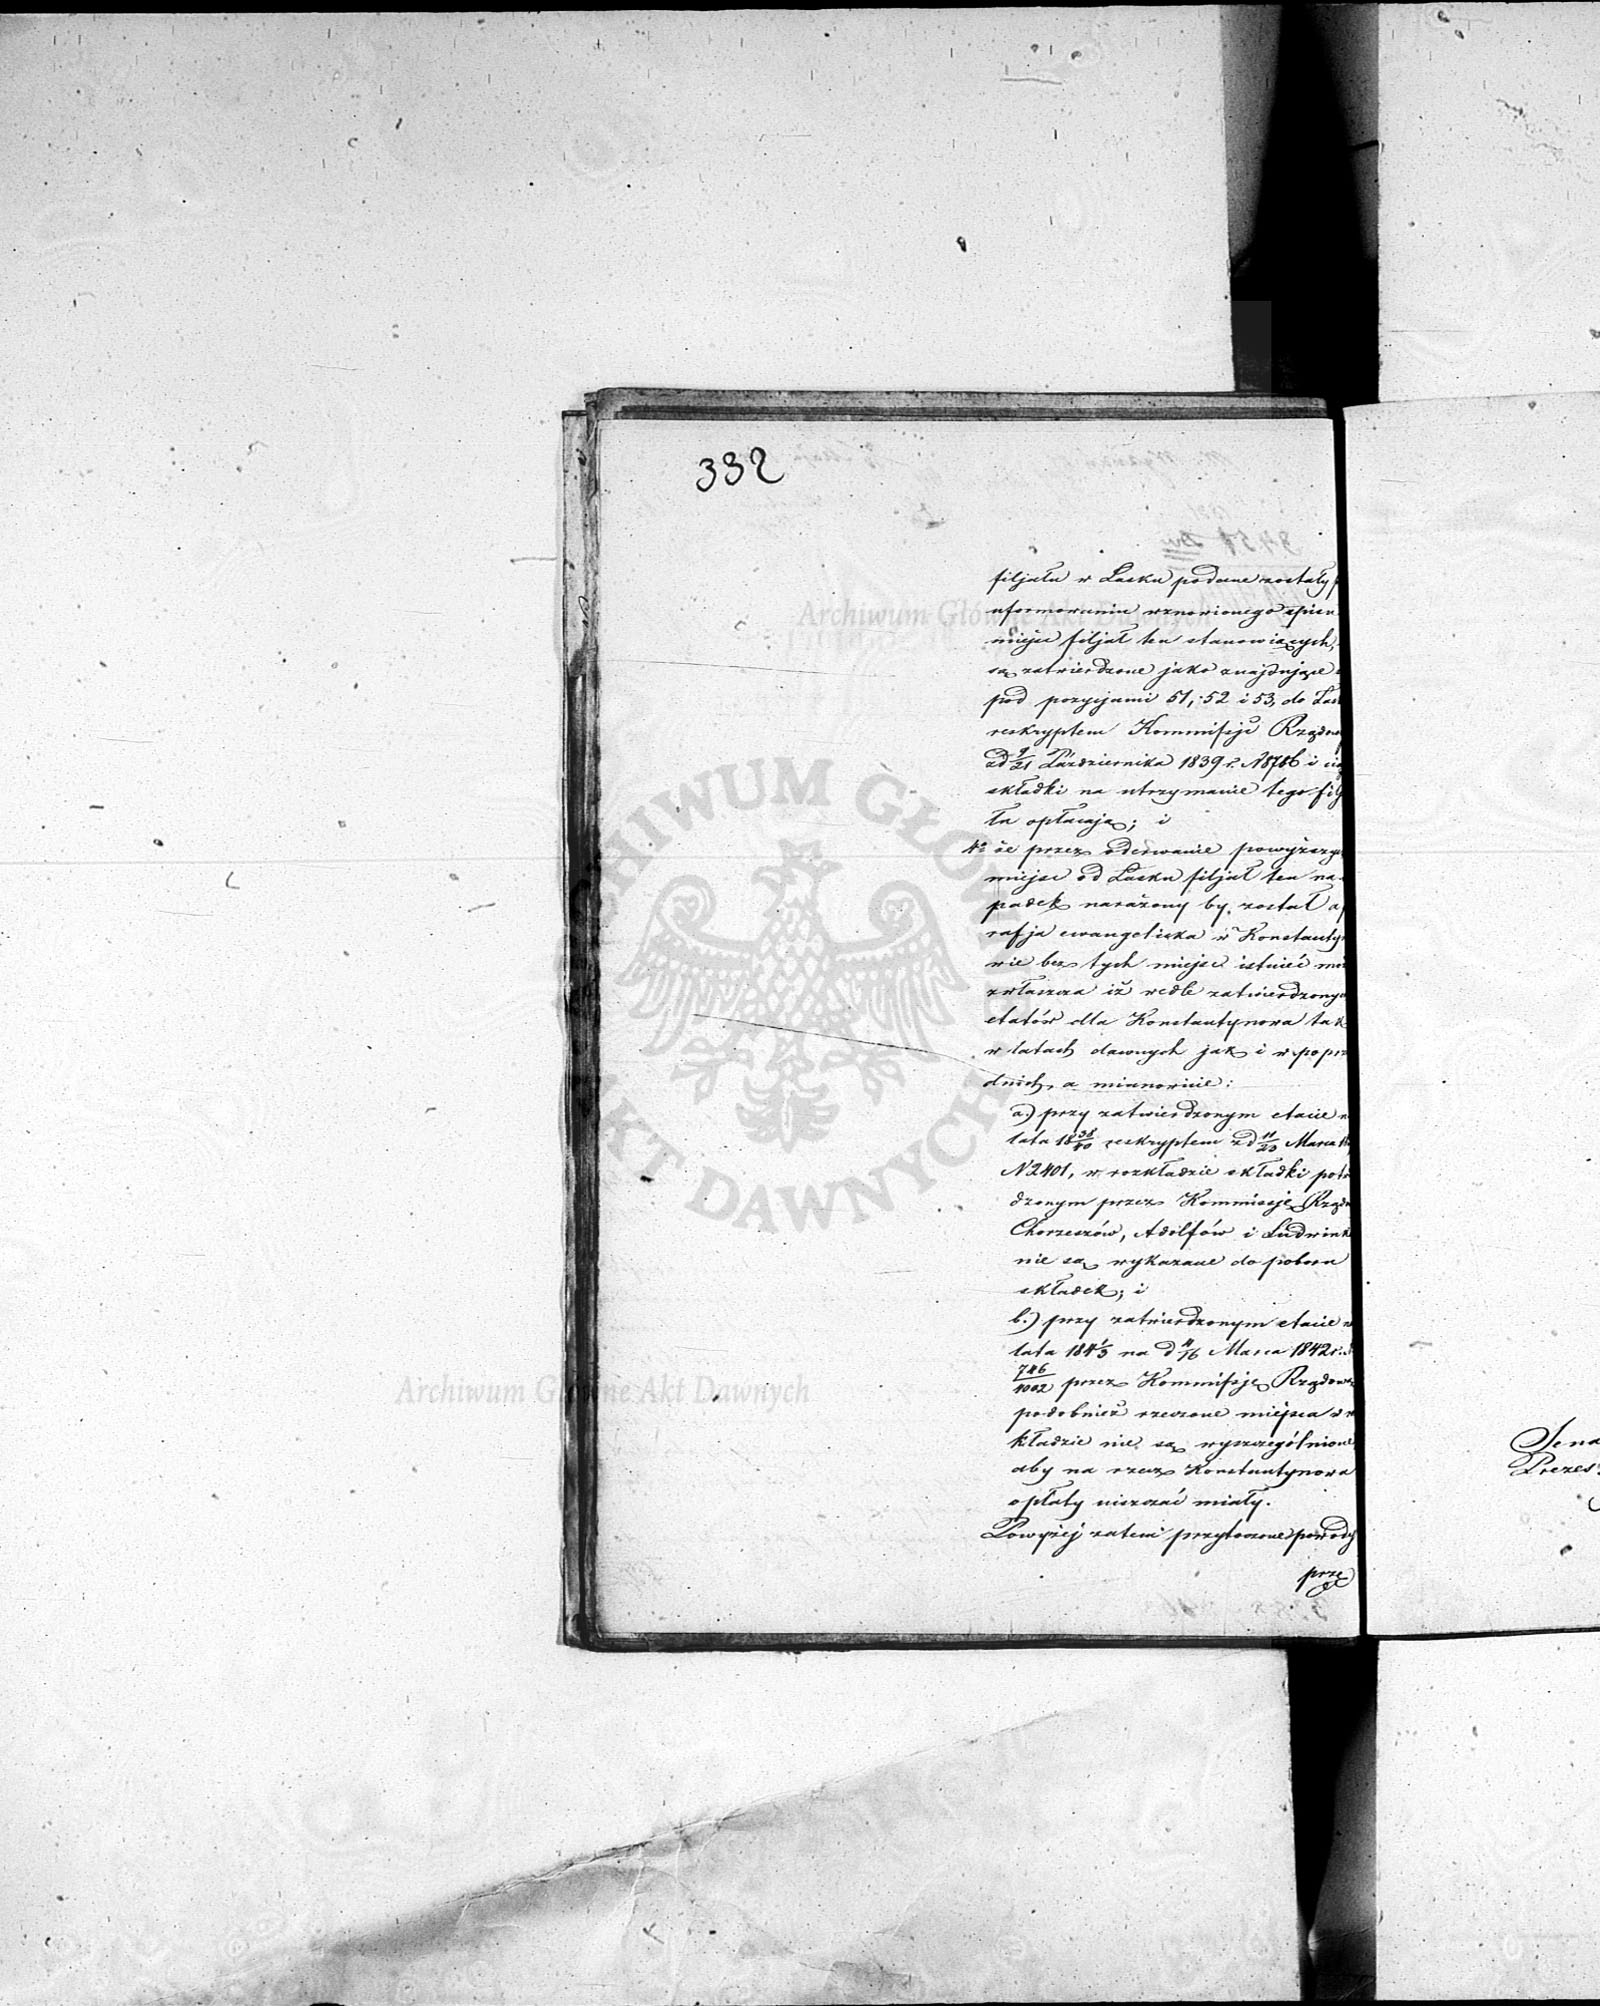 332
filjału w Łasku podane zostały
uformowaniu wznowionego spisu
miejsc filjał ten stanowiących,
są zatwierdzone jako znajdujące
pod pozycjami 51, 52 i 53, do Łas
reskryptem Kommissji Rządow
z d 9/21 Października 1839 r. N 8766 i
składki na utrzymanie tego filj
ła opłacają; i
4º że przez oderwanie powyższy
miejsc od Łasku filjał ten na
padek narażony by został a
rafja ewangelicka w Konstanty
wie bez tych miejsc istnieć mo
zwłaszcza iż wedle zatwierdzony
etatów dla Konstantynowa tak
w latach dawnych jak i w poprz
dnich, a mianowicie:
a.) przy zatwierdzonym etacie n
lata 18 38/40 reskryptem z d 11/23 Marca
N 2401, w rozkładzie składki potw
dzonym przez Kommissję Rządo
Chorzeszów, Adolfów i Ludwink
nie są wykazane do poboru
składek; i
b.) przy zatwierdzonym etacie n
lata 184 1/3 na d 4/16 Marca 1842 r.
746/1002 przez Kommissję Rządow
podobnież rzeczone miejsca w
kładzie nie są wyszczególnione
aby na rzecz Konstantynowa
opłaty uiszczać miały.
Powyżej zatem przytoczone powody
prze
Sena
Prezes
Archiwum Główne Akt Dawnych
Archiwum Główne Akt Dawnych
ARCHIWUM GŁÓWNE
AKT DAWNYCH